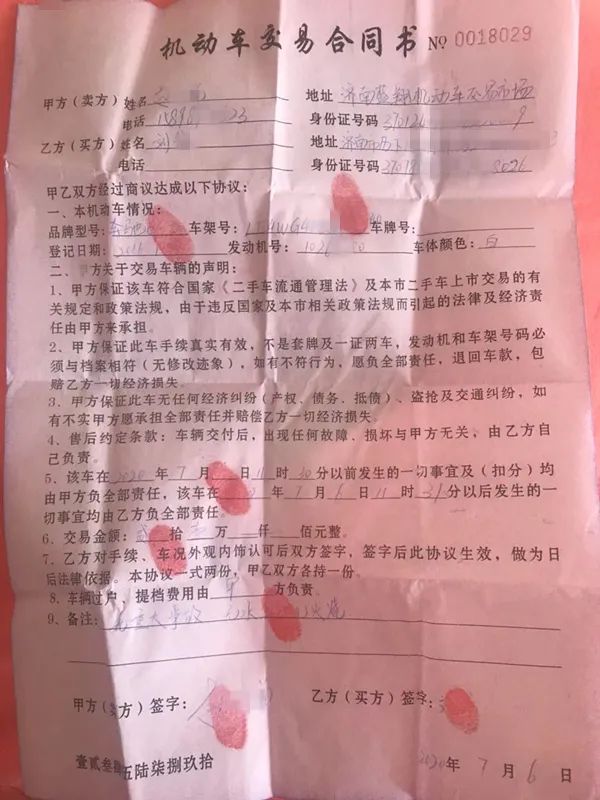 机动车交易合同书 No 0018029
甲方（卖方）姓名 地址 济南蓝翔机动车交易市场
电话 23 身份证号码 370124 9
乙方（买方）姓名 刘 地址 济南市历下 3
电话 身份证号码 3701 8026
甲乙双方经过商议达成以下协议：
一、本机动车情况：
品牌型号： 车架号： 车牌号：
登记日期： 发动机号： 车体颜色：白
二、甲方关于交易车辆的声明：
1、甲方保证该车符合国家《二手车流通管理法》及本市二手车上市交易的有
关规定和政策法规，由于违反国家及本市相关政策法规而引起的法律及经济责
任由甲方来承担。
2、甲方保证此车手续真实有效，不是套牌及一证两车，发动机和车架号码必
须与档案相符（无修改迹象），如有不符行为，愿负全部责任，退回车款，包
赔乙方一切经济损失。
3、甲方保证此车无任何经济纠纷（产权、债务、抵债）、盗抢及交通纠纷，如
有不实甲方愿承担全部责任并赔偿乙方一切经济损失。
4、售后约定条款：车辆交付后，出现任何故障、损坏与甲方无关，由乙方自
己负责。
5、该车在2020年7月 日11时30分以前发生的一切事宜及（扣分）均
由甲方负全部责任，该车在 年7月6日11时31分以后发生的一
切事宜均由乙方负全部责任。
6、交易金额：贰拾 万 仟 佰元整。
7、乙方对手续、车况外观内饰认可后双方签字，签字后此协议生效，做为日
后法律依据。本协议一式两份，甲乙双方各持一份。
8、车辆过户、提档费用由 方负责。
9、备注： 无重大事故 水 火烧
甲方（卖方）签字： 乙方（买方）签字：
壹贰叁肆伍陆柒捌玖拾 2020年7月6日